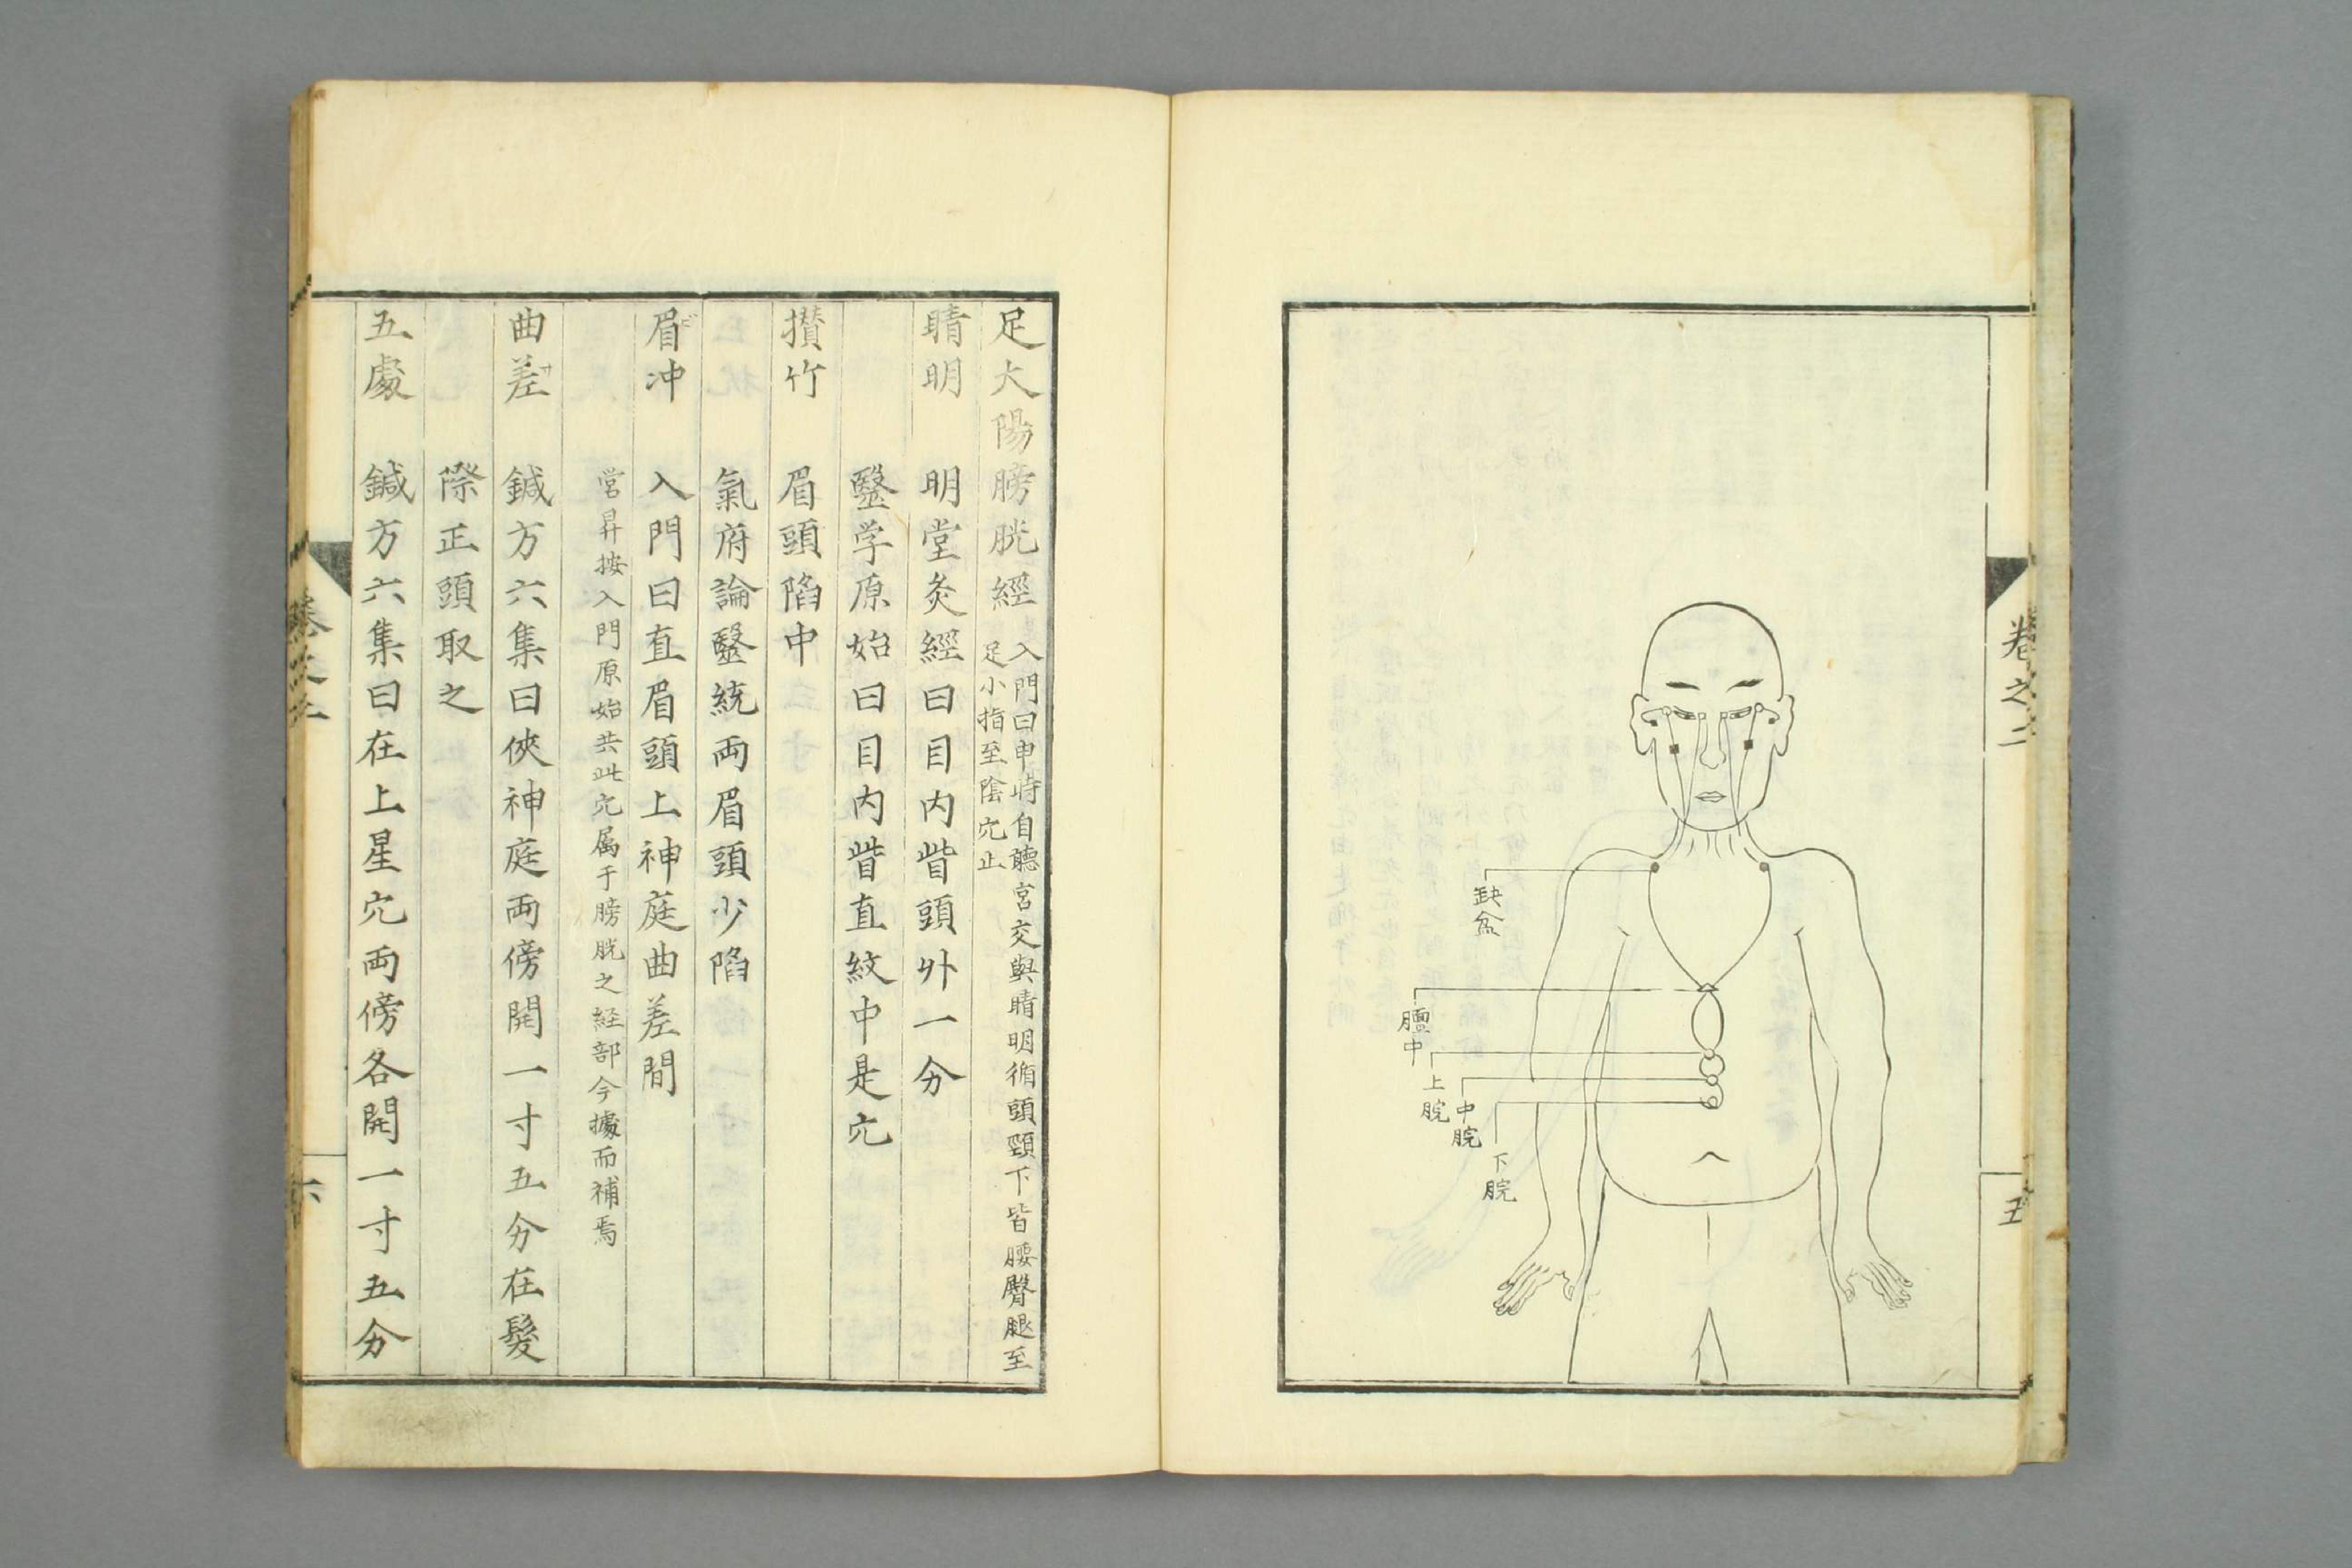 卷之二
五
缺盆
膻中
上脘
中脘
下脘
足大陽膀胱經
入門曰申時自聽宮交與睛明循頭頸下背腰臀腿至
足小指至陰穴止
睛明　明堂灸經曰目内眥頭外一分
醫学原始曰目内眥直紋中是穴
攅竹　眉頭陷中
氣府論醫統両眉頭少陷
眉冲　入門曰直眉頭上神庭曲差間
営昇按入門原始共此穴属于膀胱之経部今據而補焉
曲差　鍼方六集曰俠神庭両傍開一寸五分在髮
際正頭取之
五處　鍼方六集曰在上星穴両傍各開一寸五分
六